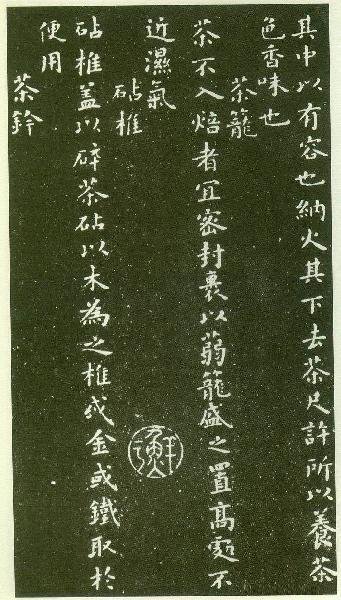 其中以有容也納火其下去茶尺許所以養茶
色香味也
茶籠
茶不入焙者宜密封裹以蒻籠盛之置高處不
近濕氣
砧椎
砧椎蓋以碎茶砧以木為之椎或金或鐵取於
便用
茶鈐